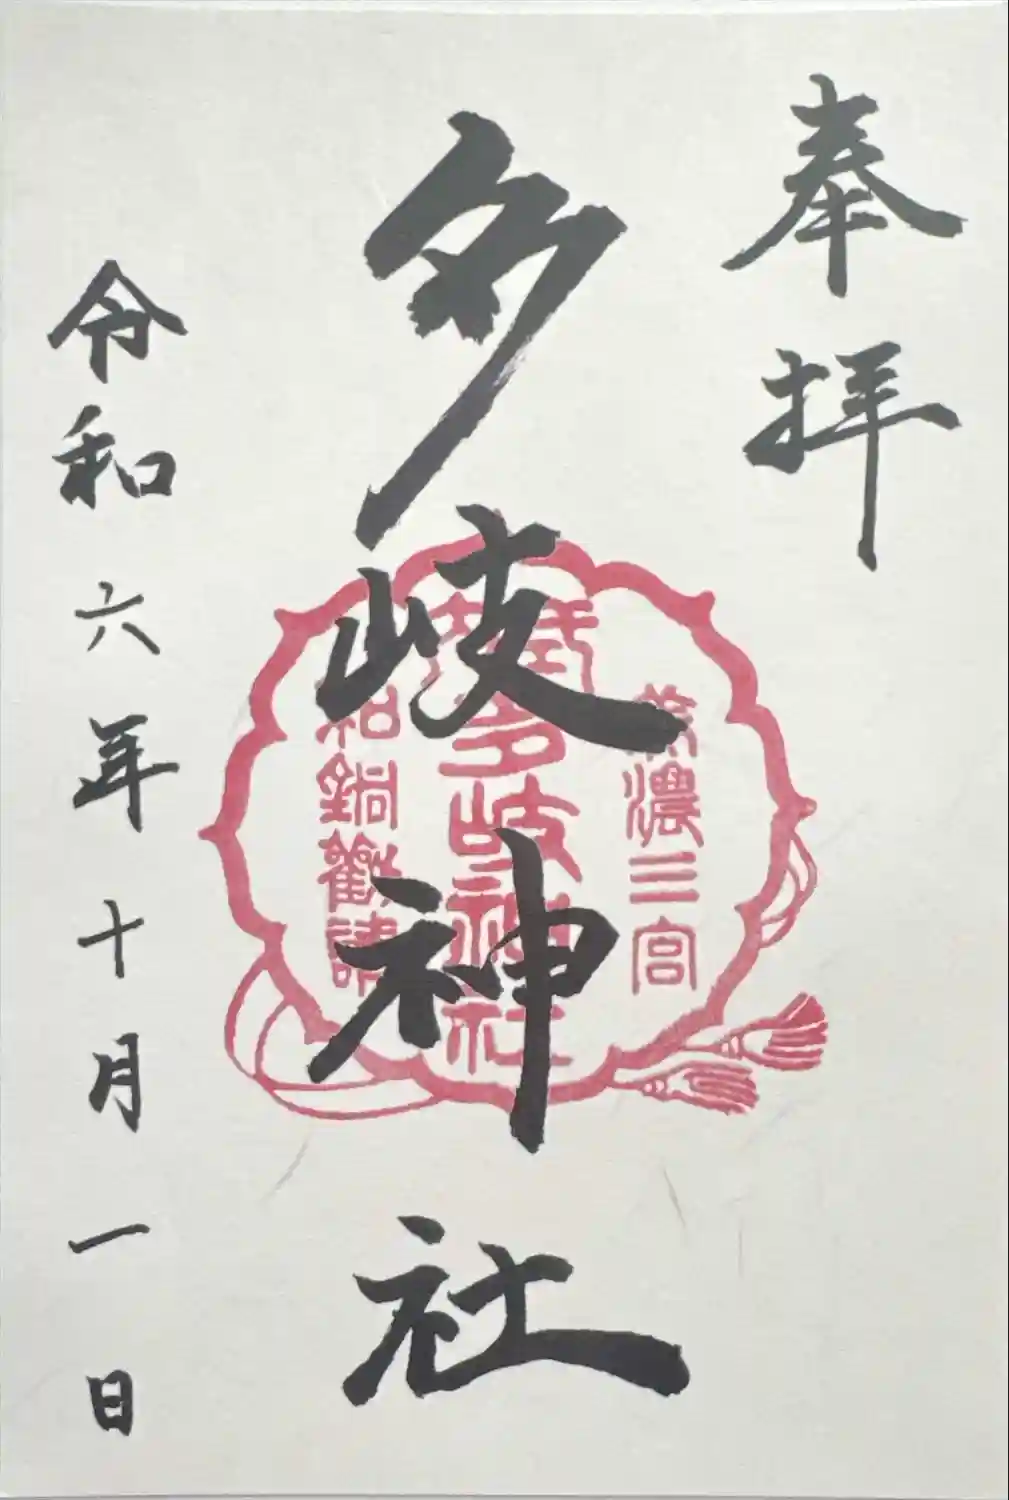 奉拝
多岐神社
令和六年十月一日
美濃三宮
多岐神社